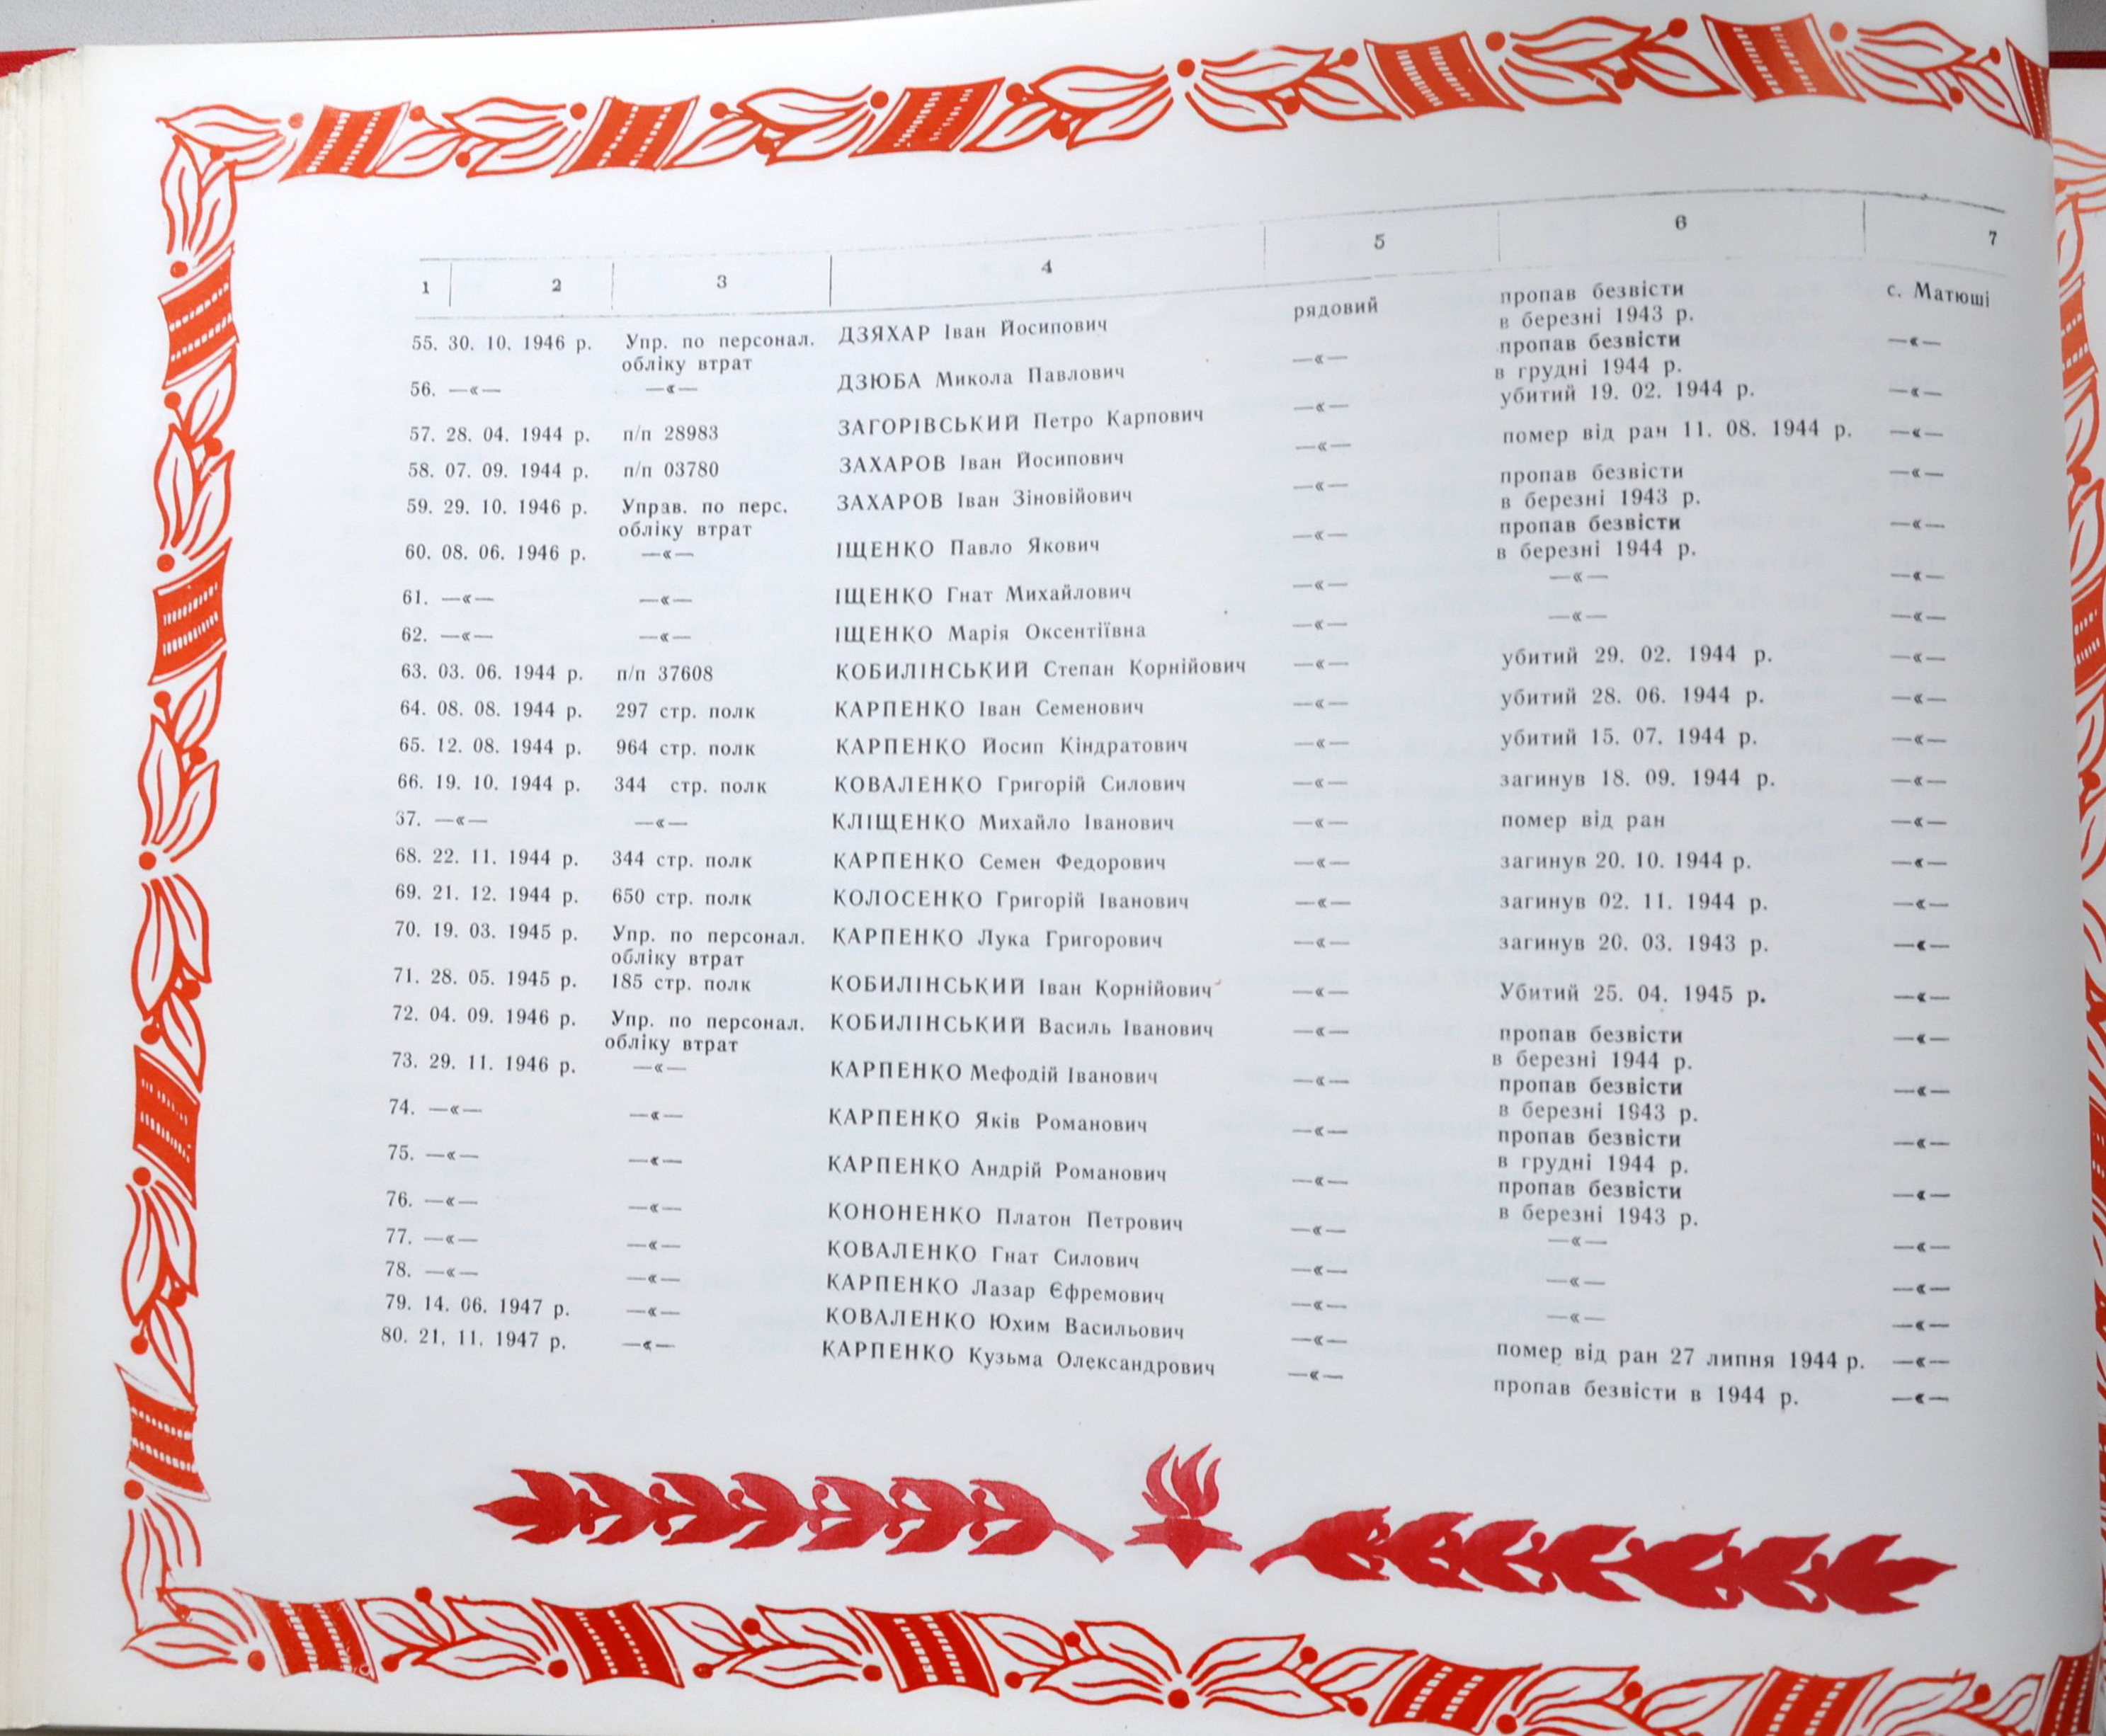 1 2 3 4 5 6 7
55. 30. 10. 1946 р. Упр. по персонал. ДЗЯХАР Іван Йосипович рядовий пропав безвісти с. Матюші
обліку втрат в березні 1943 р.
56. —«— —«— ДЗЮБА Микола Павлович —«— пропав безвісти —«—
в грудні 1944 р.
57. 28. 04. 1944 р. п/п 28983 ЗАГОРІВСЬКИЙ Петро Карпович —«— убитий 19. 02. 1944 р. —«—
58. 07. 09. 1944 р. п/п 03780 ЗАХАРОВ Іван Йосипович —«— помер від ран 11. 08. 1944 р. —«—
59. 29. 10. 1946 р. Управ. по перс. ЗАХАРОВ Іван Зіновійович —«— пропав безвісти —«—
обліку втрат в березні 1943 р.
60. 08. 06. 1946 р. —«— ІЩЕНКО Павло Якович —«— пропав безвісти —«—
в березні 1944 р.
61. —«— —«— ІЩЕНКО Гнат Михайлович —«— —«— —«—
62. —«— —«— ІЩЕНКО Марія Оксентіївна —«— —«— —«—
63. 03. 06. 1944 р. п/п 37608 КОБИЛІНСЬКИЙ Степан Корнійович —«— убитий 29. 02. 1944 р. —«—
64. 08. 08. 1944 р. 297 стр. полк КАРПЕНКО Іван Семенович —«— убитий 28. 06. 1944 р. —«—
65. 12. 08. 1944 р. 964 стр. полк КАРПЕНКО Йосип Кіндратович —«— убитий 15. 07. 1944 р. —«—
66. 19. 10. 1944 р. 344 стр. полк КОВАЛЕНКО Григорій Силович —«— загинув 18. 09. 1944 р. —«—
67. —«— —«— КЛІЩЕНКО Михайло Іванович —«— помер від ран —«—
68. 22. 11. 1944 р. 344 стр. полк КАРПЕНКО Семен Федорович —«— загинув 20. 10. 1944 р. —«—
69. 21. 12. 1944 р. 650 стр. полк КОЛОСЕНКО Григорій Іванович —«— загинув 02. 11. 1944 р. —«—
70. 19. 03. 1945 р. Упр. по персонал. КАРПЕНКО Лука Григорович —«— загинув 20. 03. 1943 р. —«—
обліку втрат
71. 28. 05. 1945 р. 185 стр. полк КОБИЛІНСЬКИЙ Іван Корнійович —«— Убитий 25. 04. 1945 р. —«—
72. 04. 09. 1946 р. Упр. по персонал. КОБИЛІНСЬКИЙ Василь Іванович —«— пропав безвісти —«—
обліку втрат в березні 1944 р.
73. 29. 11. 1946 р. —«— КАРПЕНКО Мефодій Іванович —«— пропав безвісти —«—
в березні 1943 р.
74. —«— —«— КАРПЕНКО Яків Романович —«— пропав безвісти —«—
в грудні 1944 р.
75. —«— —«— КАРПЕНКО Андрій Романович —«— пропав безвісти —«—
в березні 1943 р.
76. —«— —«— КОНОНЕНКО Платон Петрович —«— —«— —«—
77. —«— —«— КОВАЛЕНКО Гнат Силович —«— —«— —«—
78. —«— —«— КАРПЕНКО Лазар Єфремович —«— —«— —«—
79. 14. 06. 1947 р. —«— КОВАЛЕНКО Юхим Васильович —«— помер від ран 27 липня 1944 р. —«—
80. 21. 11. 1947 р. —«— КАРПЕНКО Кузьма Олександрович —«— пропав безвісти в 1944 р. —«—